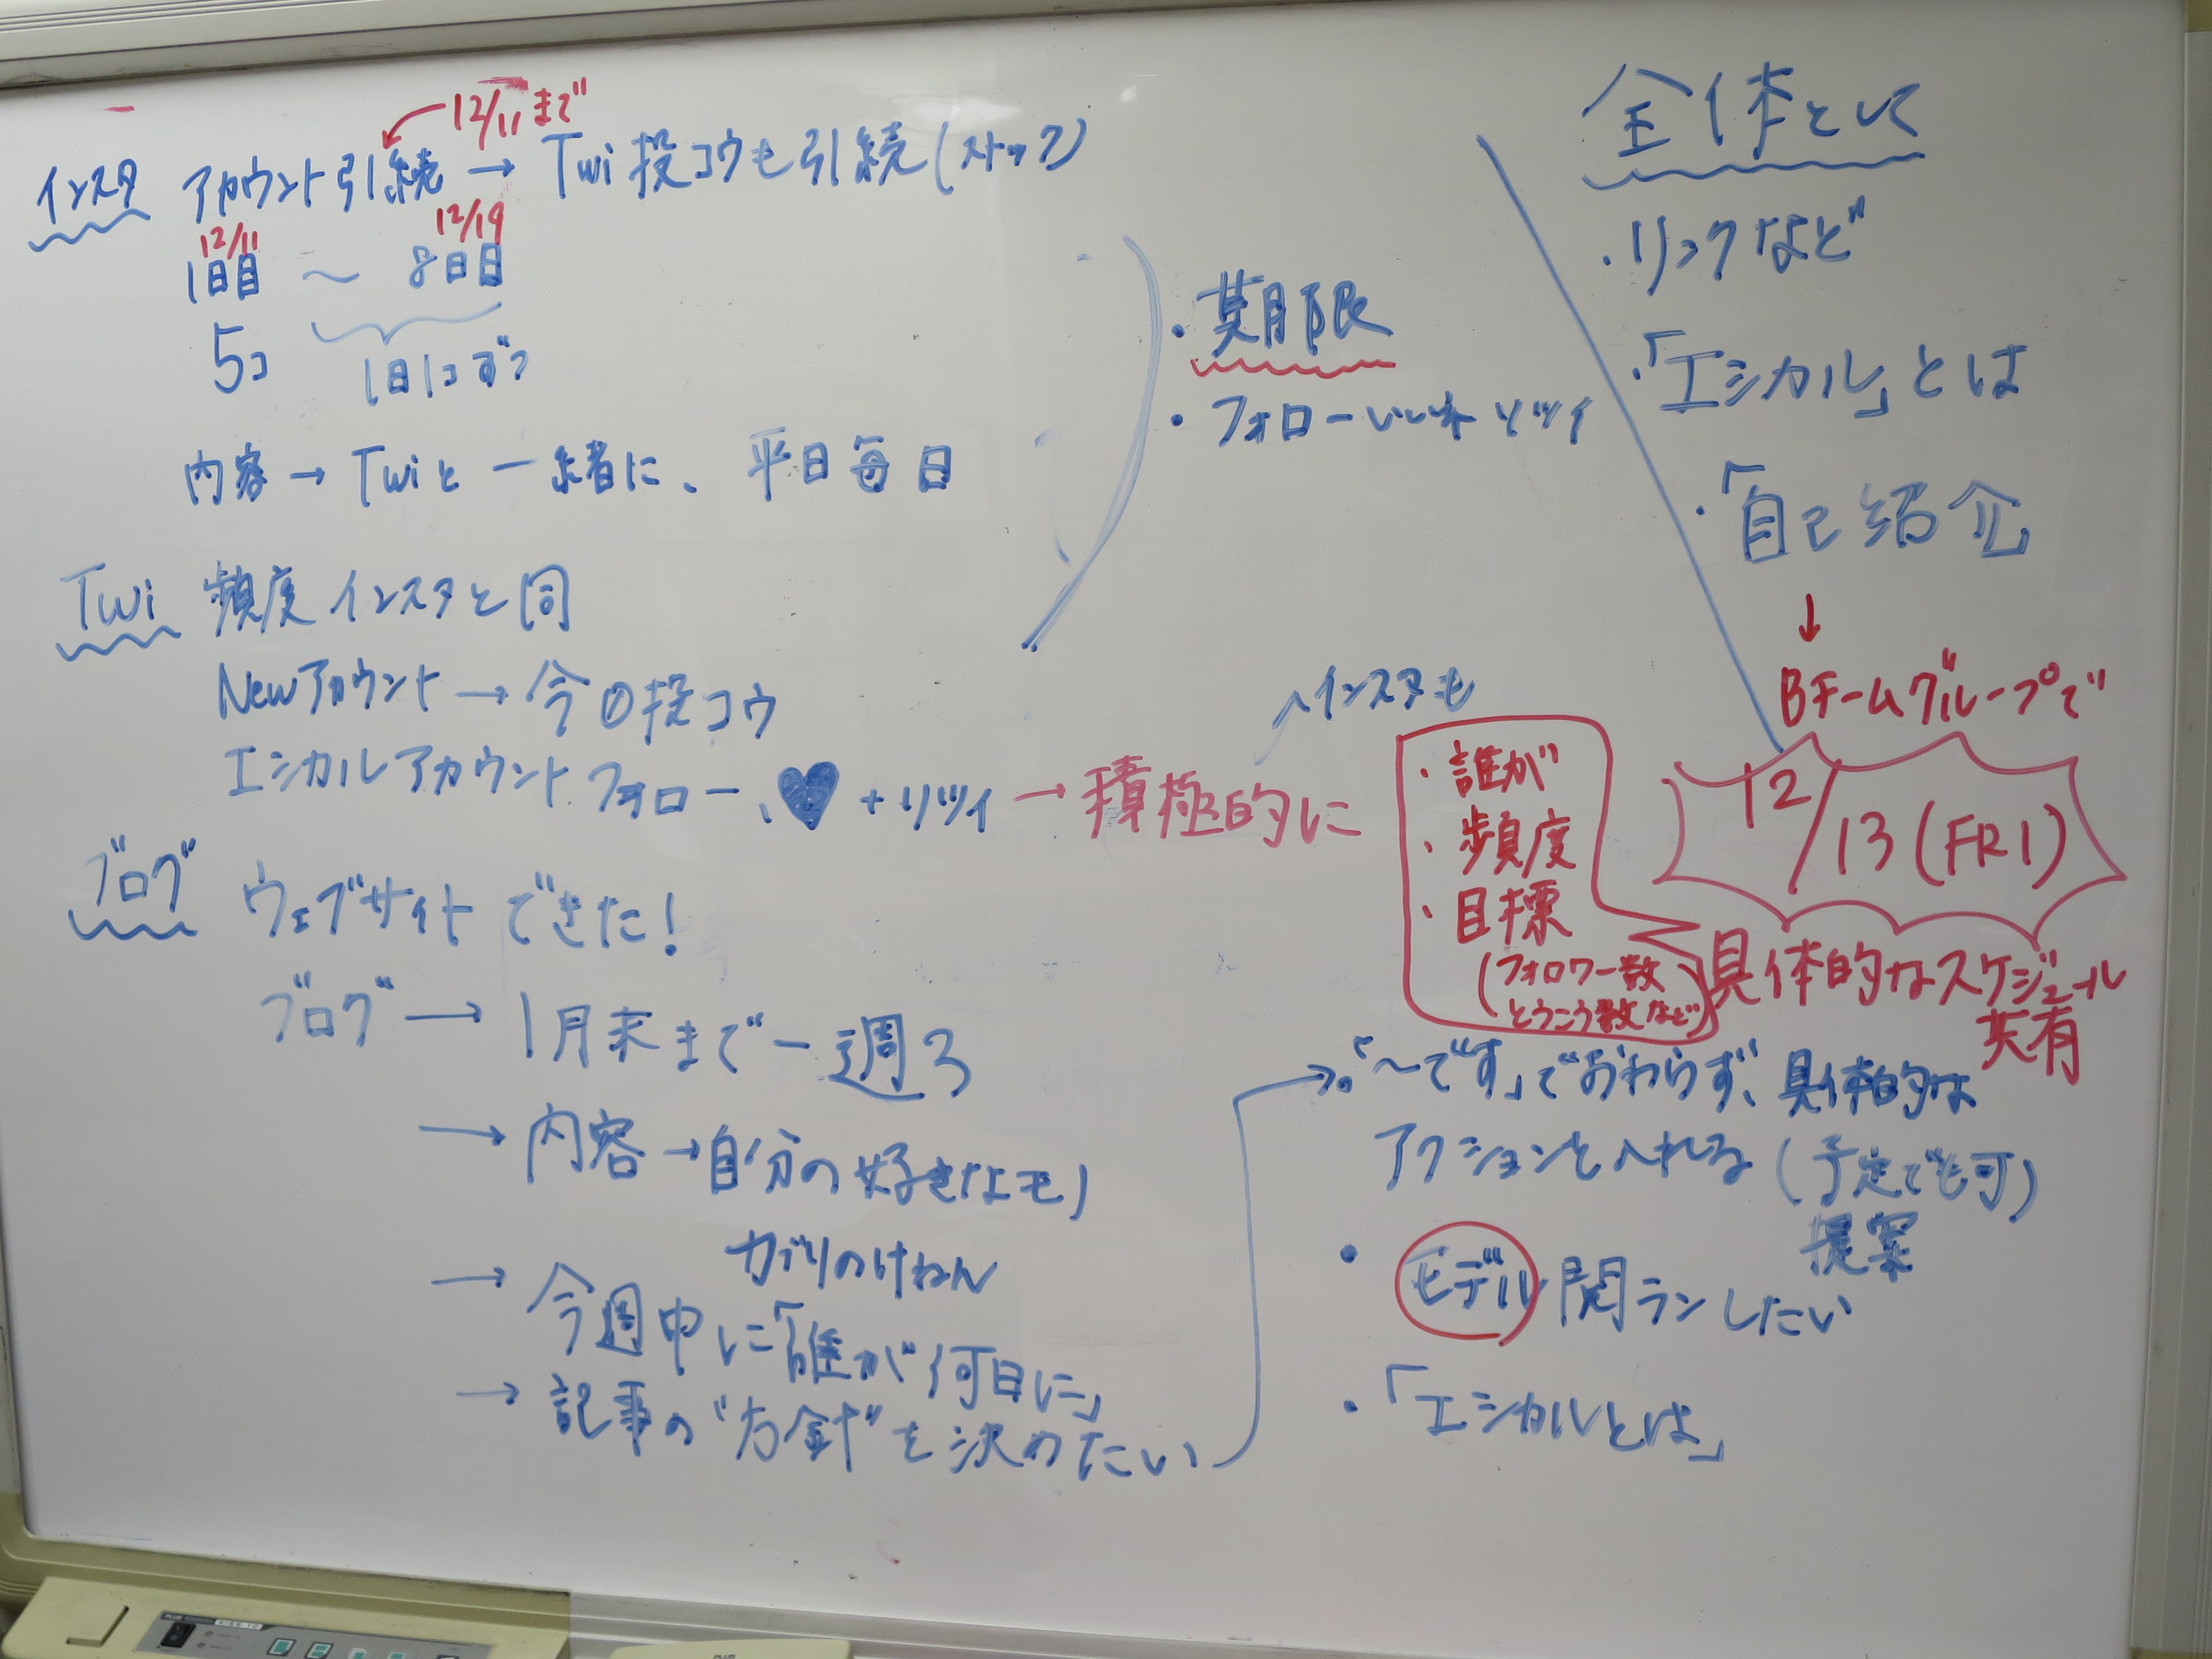 12/11まで
インスタ アカウント引続 → Twi投コウも引続(ストック)
12/11 12/19
1日目 ～ 8日目
5コ 1日1コずつ
内容 → Twiと一緒に、平日毎日
・期限
・フォローいいねリツイ
Twi 頻度インスタと同
Newアカウント → 今の投コウ
エシカルアカウント フォロー、♥ + リツイ → 積極的に
インスタも
ブログ ウェブサイトできた!
ブログ → 1月末まで一週3
→ 内容 → 自分の好きなモノ
カブリのけねん
→ 今週中に「誰が何日に」
→ 記事の"方針"を決めたい
全体として
・リンクなど
・「エシカル」とは
・「自己紹介」
↓
Bチームグループで
12/13(FRI)
具体的なスケジュール
共有
・誰が
・頻度
・目標
(フォロワー数
とうこう数など)
→・「～です」でおわらず、具体的な
アクションを入れる(予定でも可)
提案
・モデル閲ランしたい
・「エシカルとは」